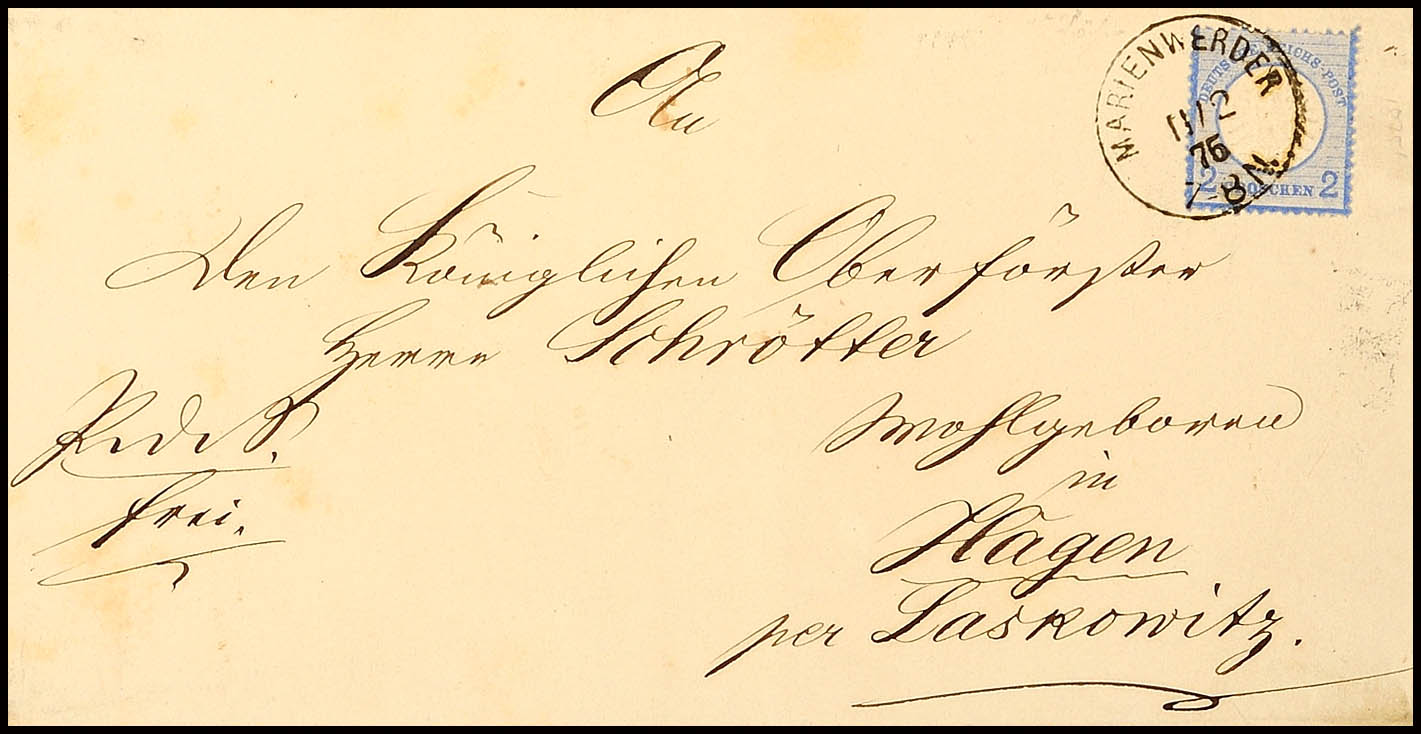 An
den Königlichen Oberförster
Herrn Schrötter
Wohlgeboren
in
Hagen
per Laskowitz.
frei.
MARIENWERDER
11/2
75
7-8N.
DEUTSCHE REICHS-POST
2 GROSCHEN 2